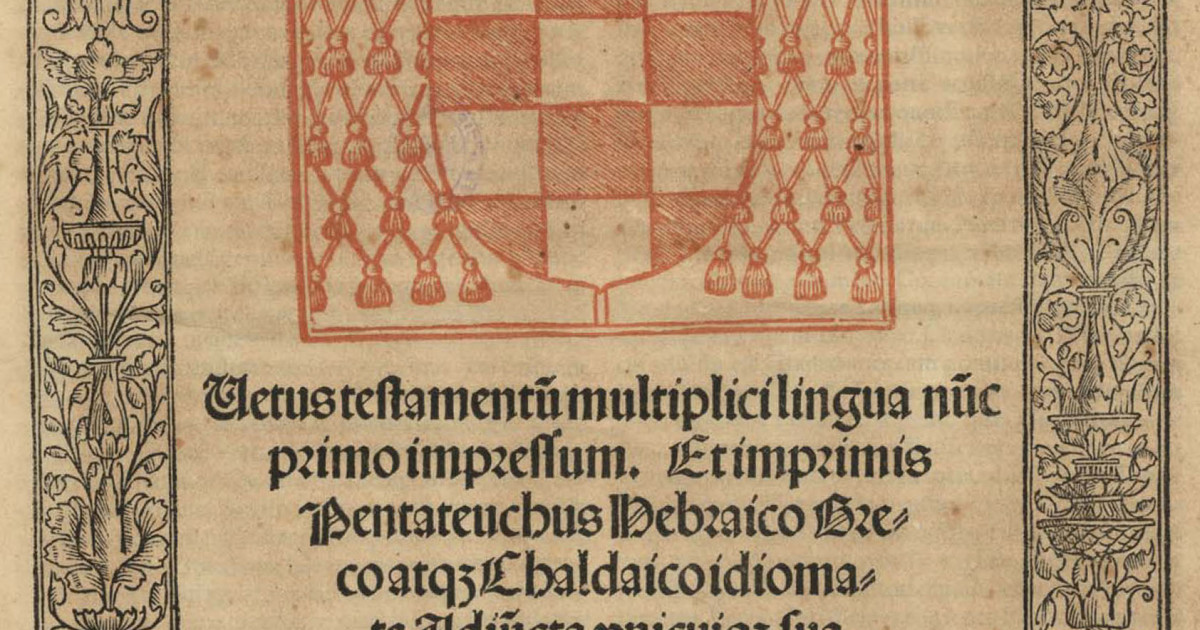 Uetus testamentũ multiplici lingua nũc
primo impressum. Et imprimis
Pentateuchus Hebraico Gre⸗
co atqȝ Chaldaico idioma⸗
te. Adiũcta unicuiqȝ sua